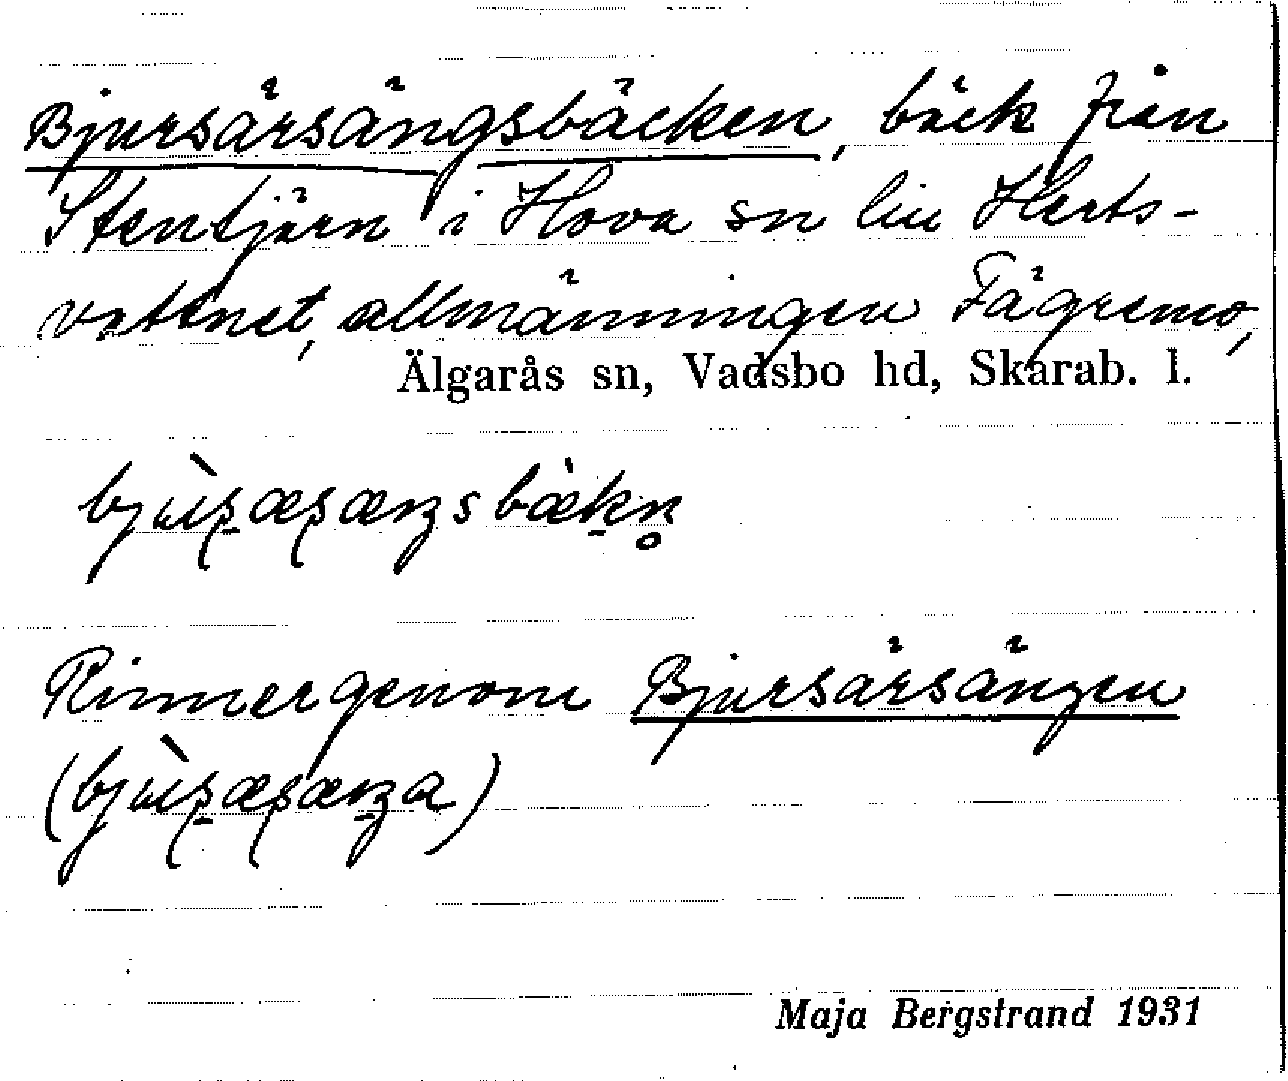 Bjursärsängsbäcken, bäck från
Stentjärn i Hova sn till Herts-
vattnet, allmänningen Fägremo,
Älgarås sn, Vadsbo hd, Skarab. l.
Rinner genom Bjursärsängen
Maja Bergstrand 1931